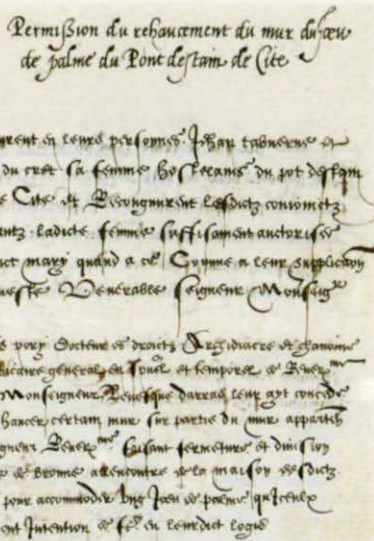 Permission du rehaucement du mur du Jeu
de palme du Pont destain de Cite
urent en leurs personnes Jehan tabuerne et
du cret sa femme hostelains du pot destain
e Cite et Recongnurent lesdictz conioinctz
antz ladicte femme suffisament auctorisee
ict mary quand a ce Comme a leur supplication
ueste Venerable seigneur Monseigr
pory Docteur es droictz Archidiacre et chanoine
icaire general en et temporel de Reuer
Monseigneur Leuesque darras leur ayt concede
haucer certain mur sur partie du mur apparten
gneur Reuerme faisant fermeture et diuision
de brome a lencontre de la maison desdictz
pour accommoder ung Jeu de palme quiceulx
ont Intention de en leurdict logis